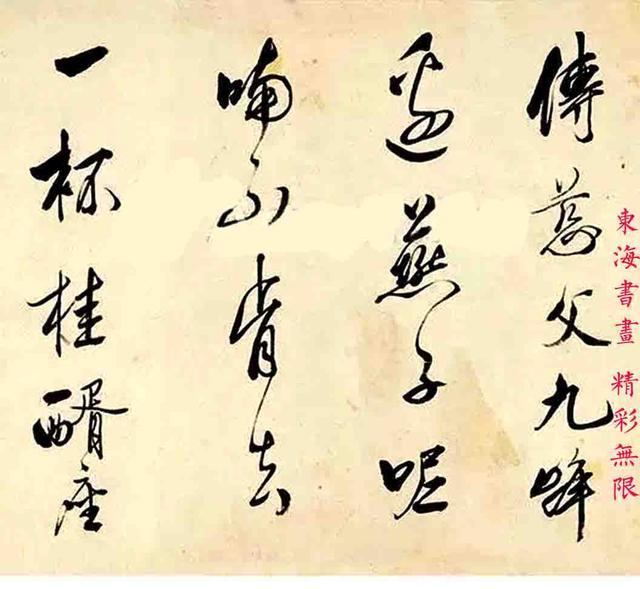 傳慈父九
燕子呢
喃不肯去
一杯桂醑座
東海書畫 精彩無限